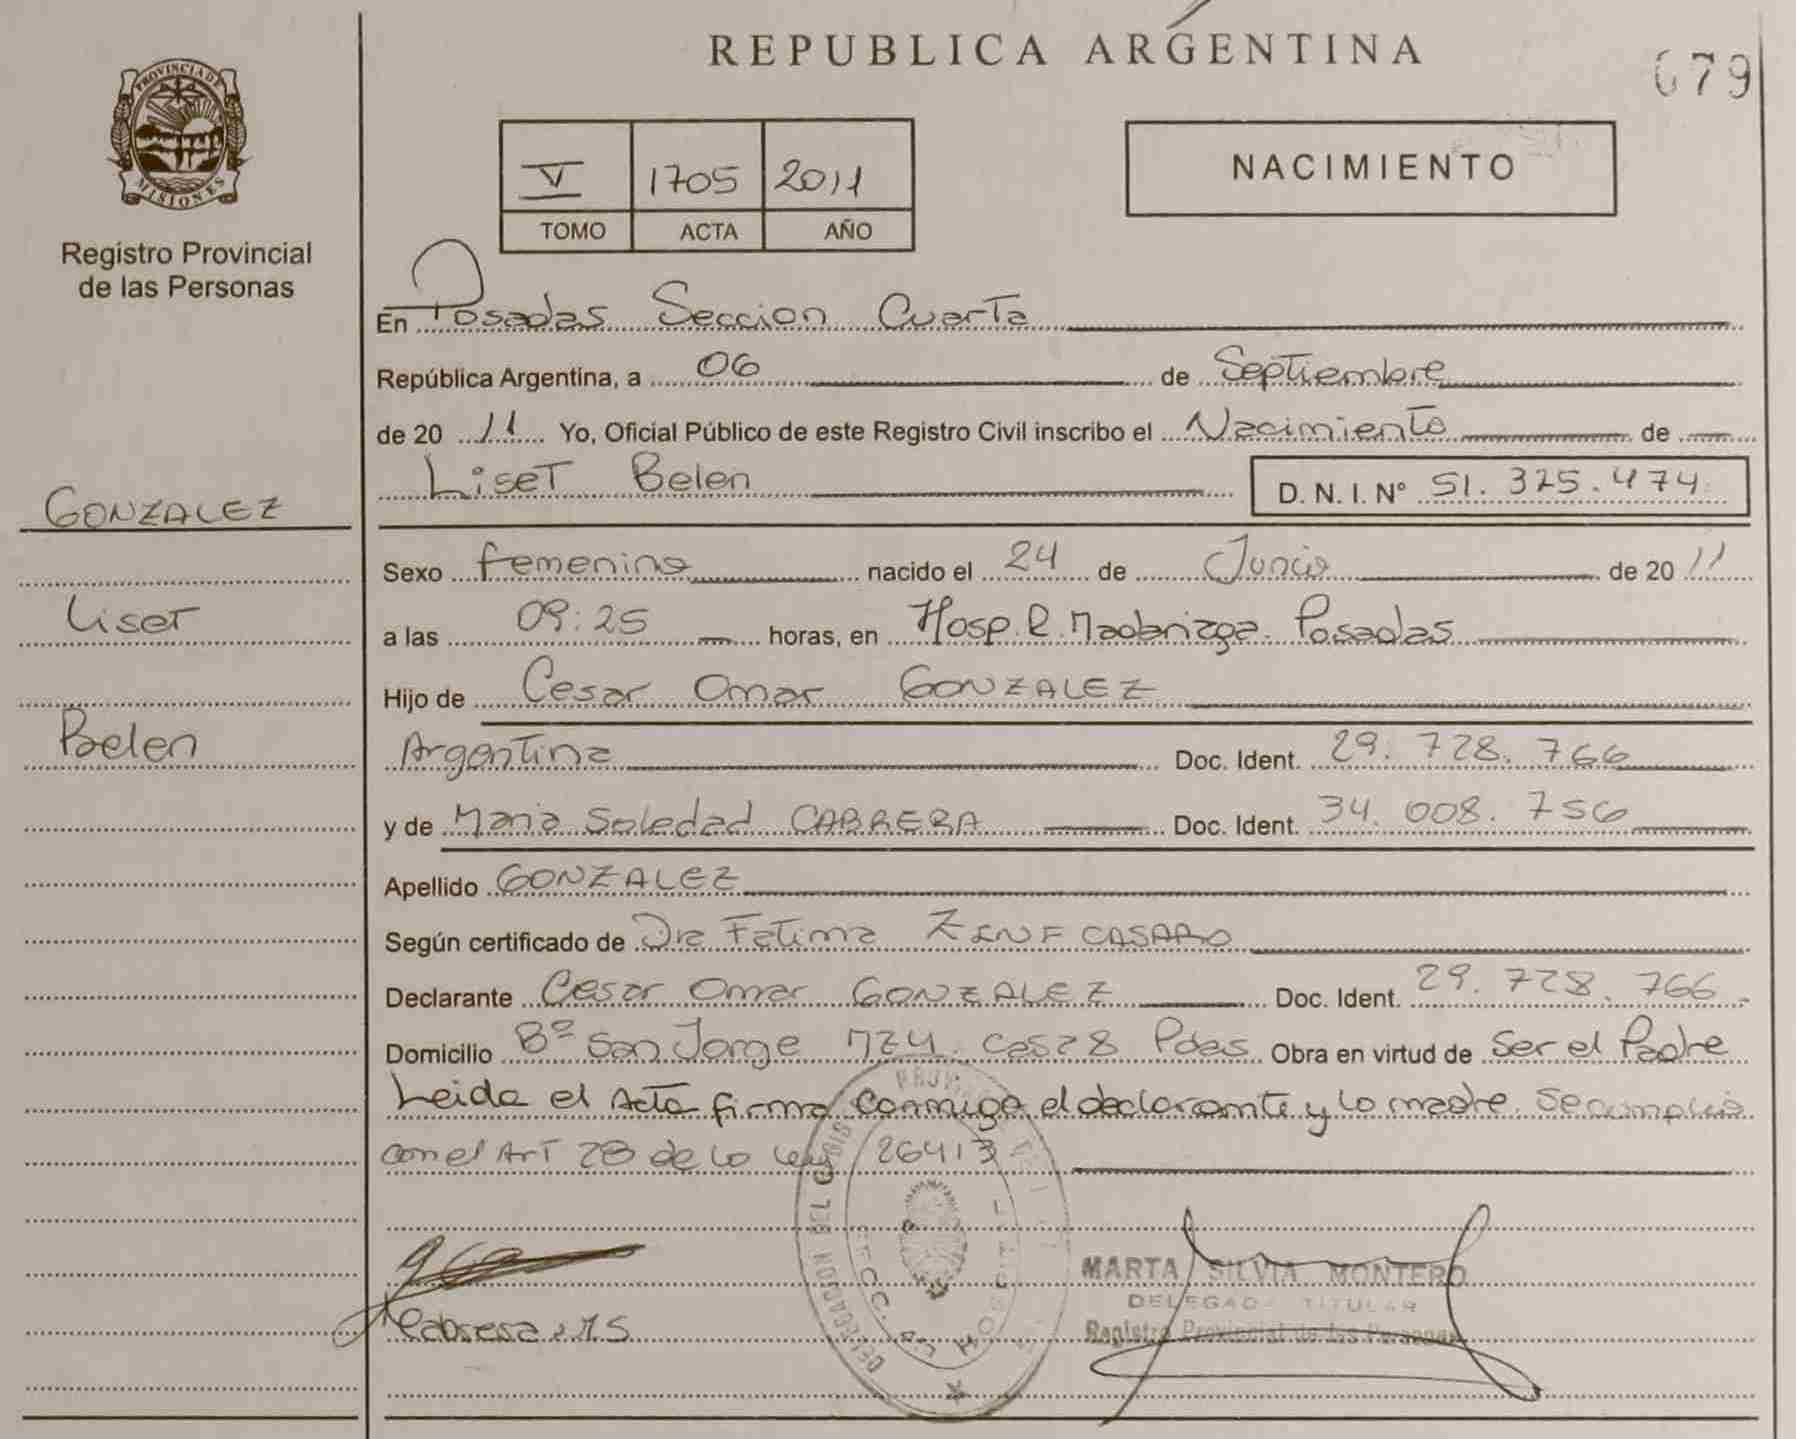 REPUBLICA ARGENTINA
679
PROVINCIA DE
MISIONES
Registro Provincial
de las Personas
V 1705 2011
TOMO ACTA AÑO
NACIMIENTO
En Posadas Seccion Cuarta
República Argentina, a 06 de Septiembre
de 20 11 Yo, Oficial Público de este Registro Civil inscribo el Nacimiento de
Liset Belen D. N. I. Nº 51.325.474
GONZALEZ
Liset
Belen
Sexo femenino nacido el 24 de Junio de 20 11
a las 09:25 horas, en Hosp. R. Madariaga. Posadas
Hijo de Cesar Omar GONZALEZ
Argentina Doc. Ident. 29.728.766
y de Maria Soledad CABRERA Doc. Ident. 34.008.756
Apellido GONZALEZ
Según certificado de Dra Fatima
Declarante Cesar Omar GONZALEZ Doc. Ident. 29.728.766
Domicilio Bº San Jorge casa 8 Pdas Obra en virtud de Ser el Padre
Leida el Acta firma conmigo el declarante y la madre. Se cumplio
con el Art 28 de la ley 26413
Cabrera M S
MARTA SILVIA MONTERO
DELEGADA TITULAR
Registro Provincial de las Personas
DELEGACION DEL REGISTRO